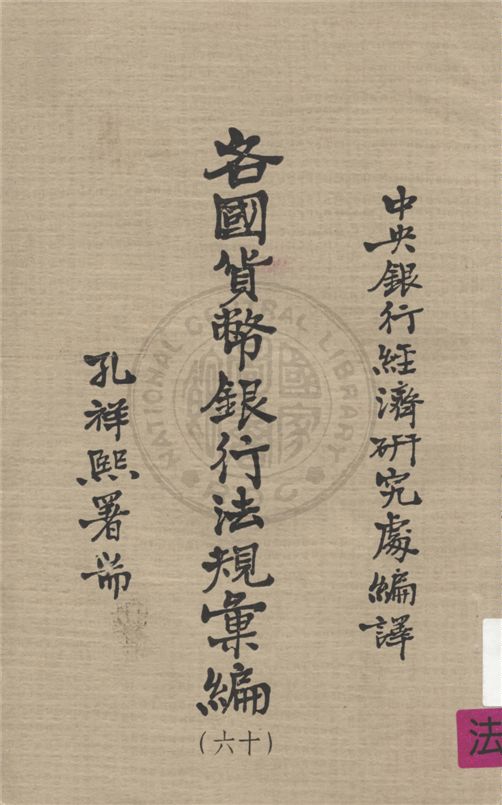 中央銀行經濟研究處編譯
各國貨幣銀行法規彙編
(十六)
孔祥熙署耑
NATIONAL CENTRAL LIBRARY
法